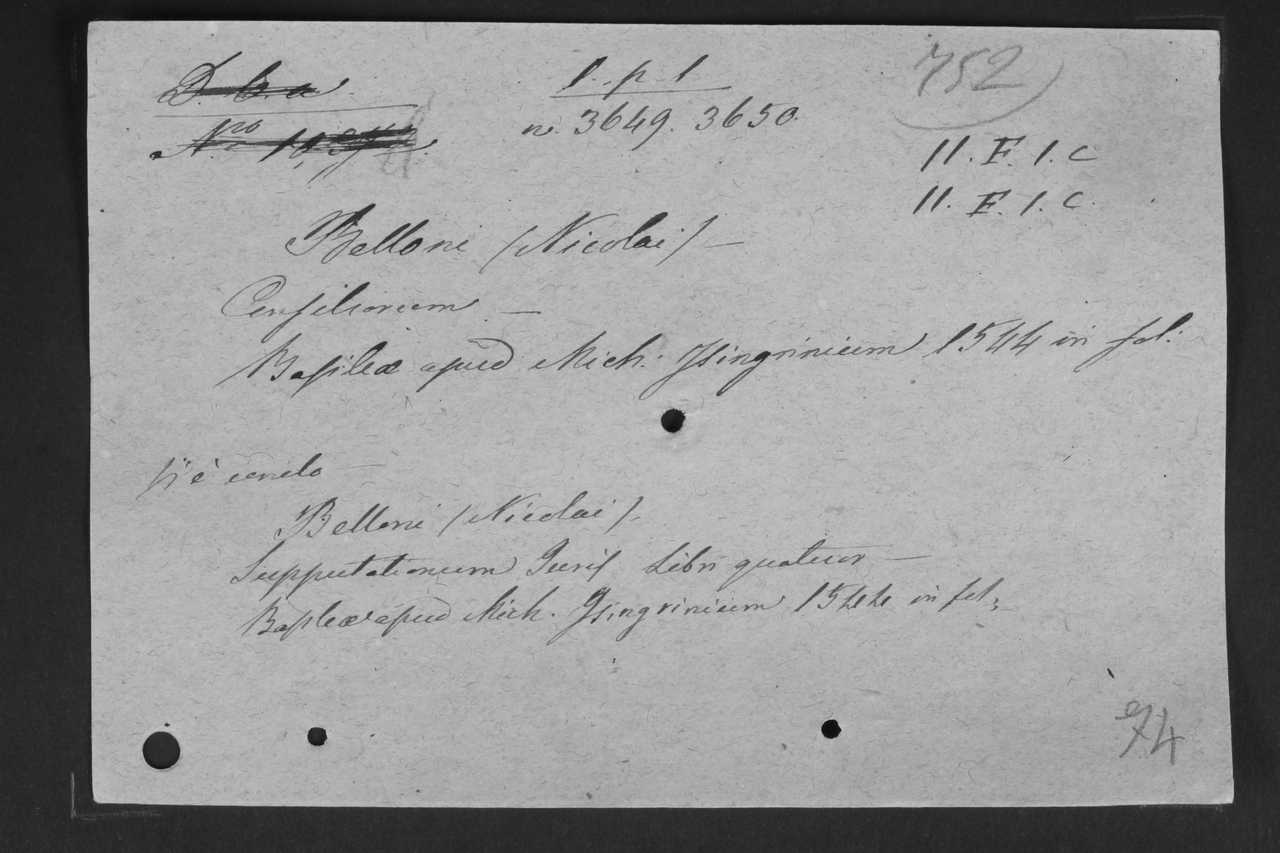 D. b. a.
1. p. 1
752
n. 3649. 3650.
Nro
11. F. 1. C
11. F. 1. C.
Belloni (Nicolai) —
Consiliorum —
Basileæ apud Mich. Isingrinium 1544 in fol.
si è unito —
Belloni (Nicolai).
Supputationum Juris Libri quatuor —
Basileæ apud Mich. Isingrinium 1544 in fol.
74